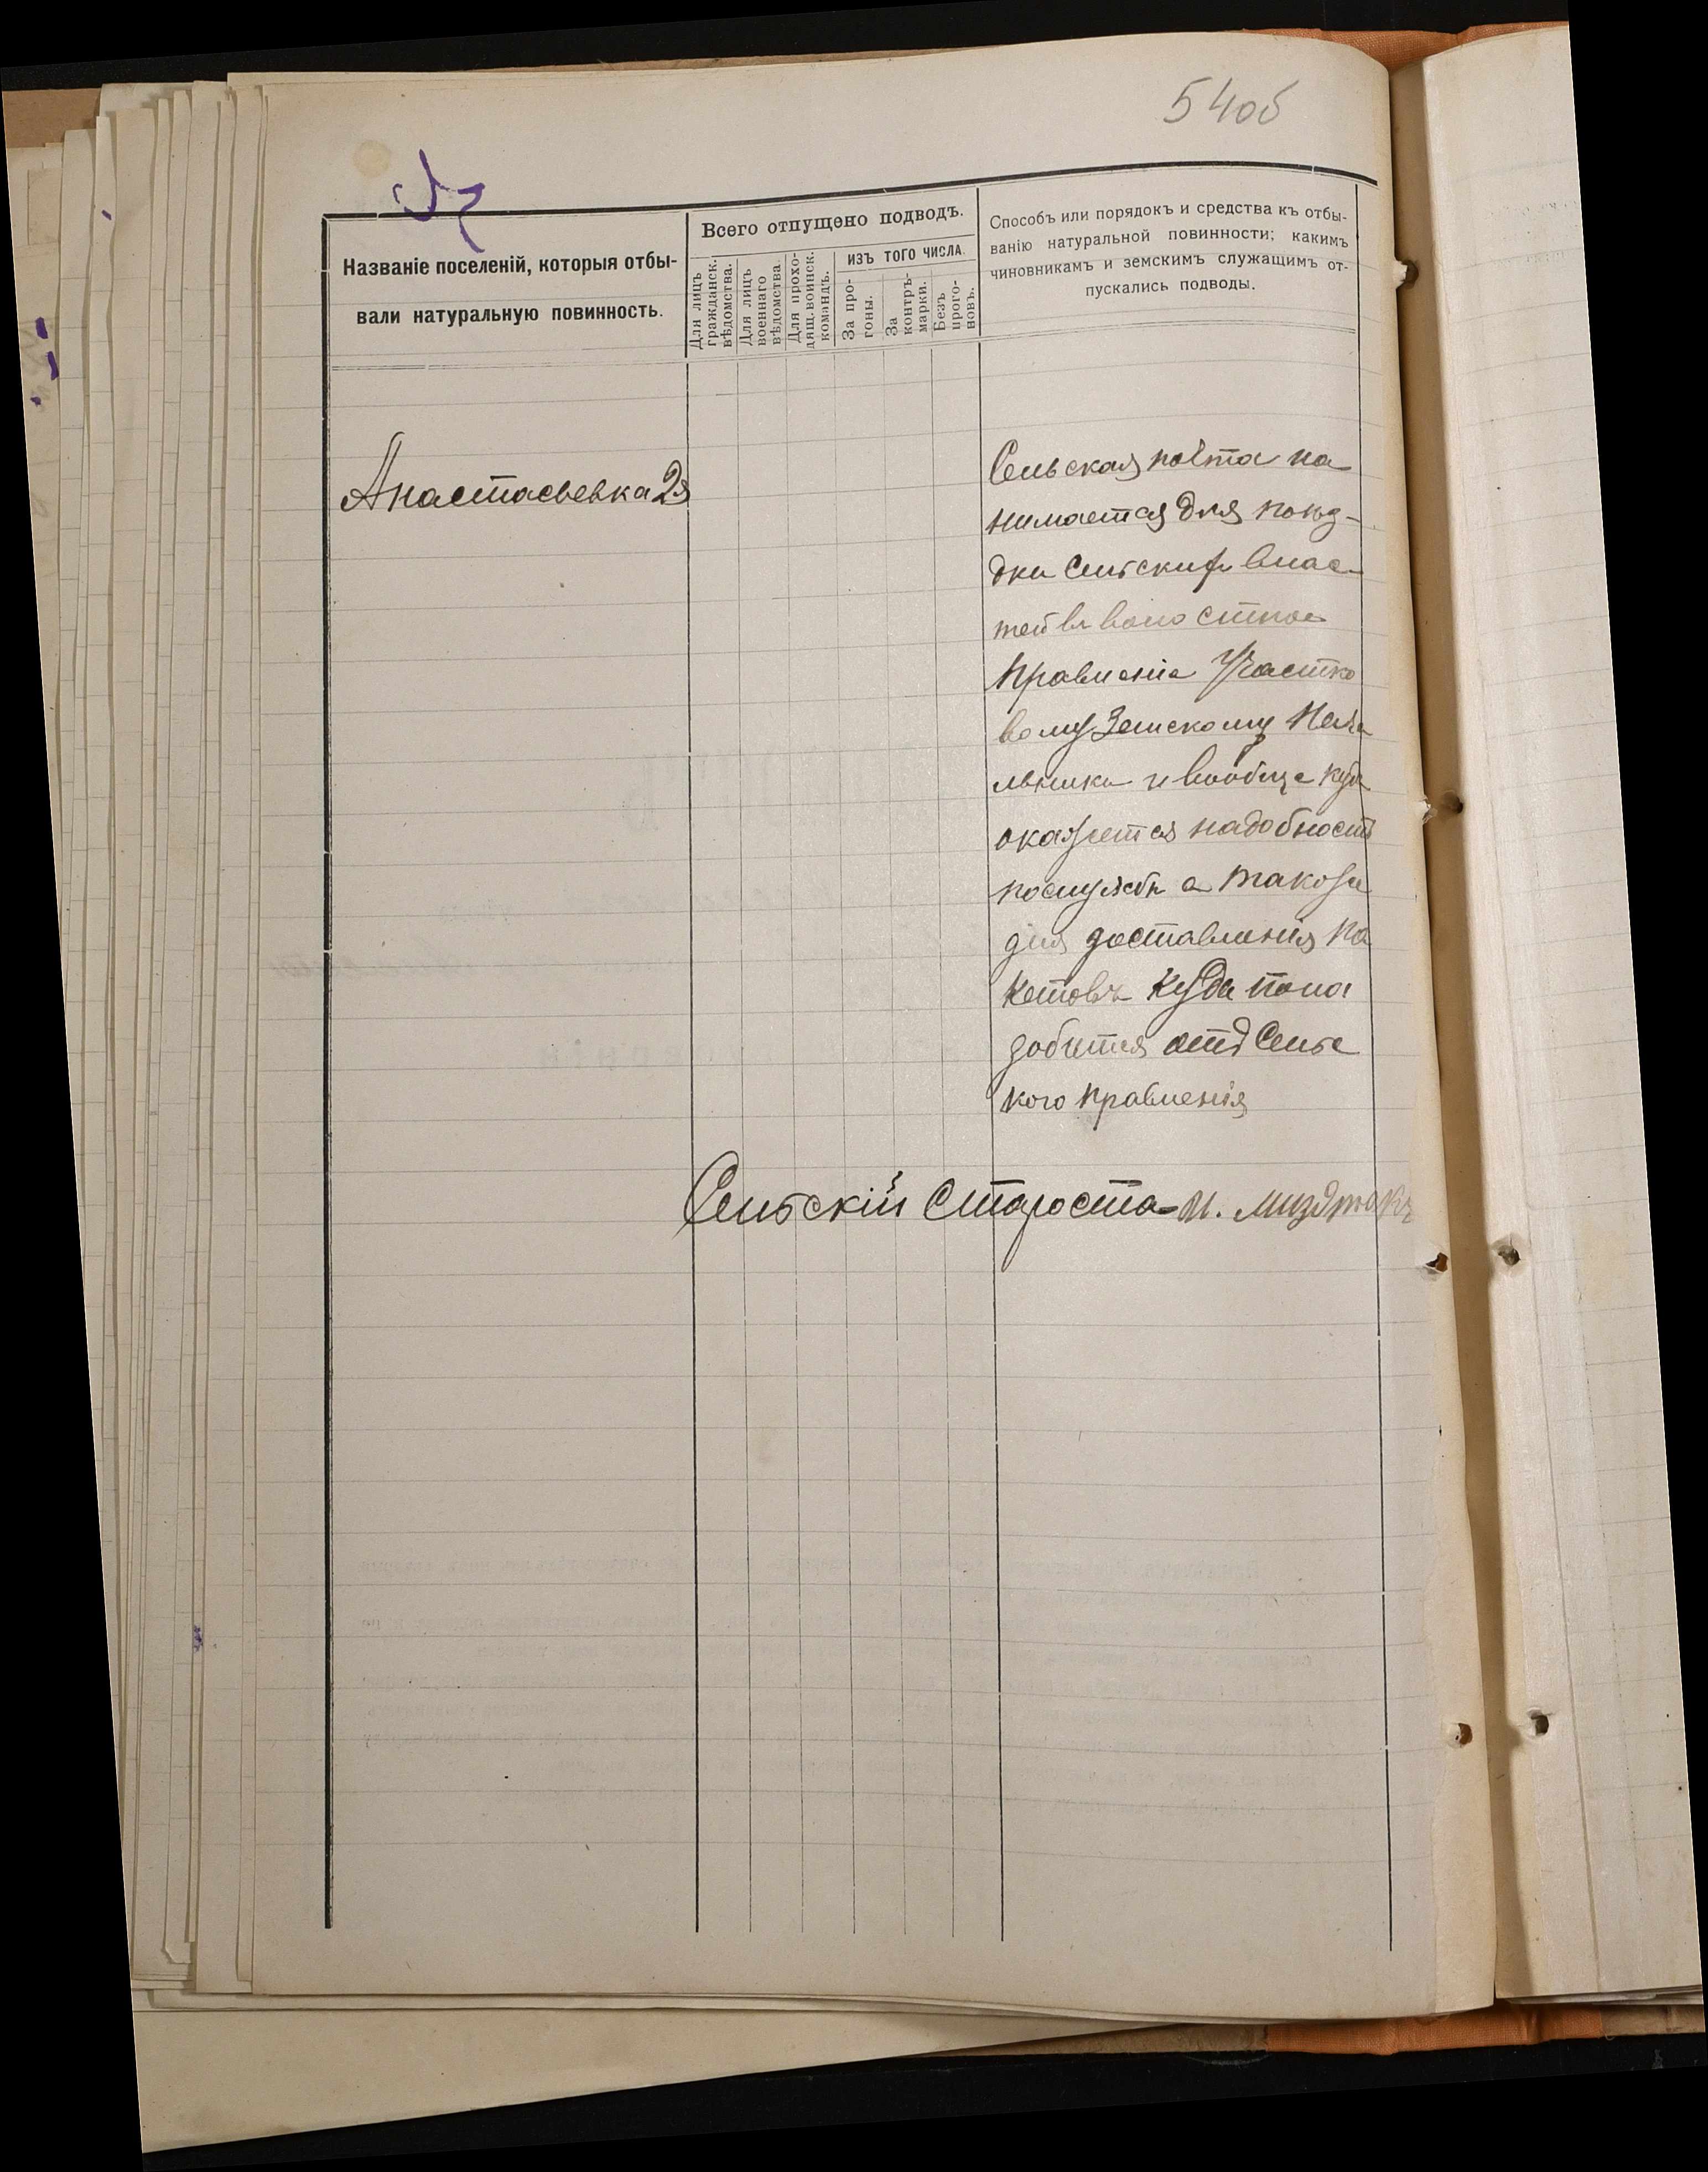 54об
Названіе поселеній, которыя отбы-
вали натуральную повинность.
Всего отпущено подводъ.
Для лицъ
гражданск.
вѣдомства.
Для лицъ
военнаго
вѣдомства
Для прохо-
дящ. воинск.
командъ.
ИЗЪ ТОГО ЧИСЛА.
За про-
гоны.
За
контръ-
марки.
Безъ
прого-
новъ.
Способъ или порядокъ и средства къ отбы-
ванію натуральной повинности; какимъ
чиновникамъ и земскимъ служащимъ от-
пускались подводы.
Анастасьевка 2я
Сельская почта на
нимается для поѣз-
дки Сельскихъ влас
тей въ волостное
Правленіе Участко
вому Земскому Нача
льнику и вообще куда
окажется надобность
по службѣ а также
для доставленія па
кетовъ куда пона
добится отъ Сельс
кого правленія
Сельскій Староста И.